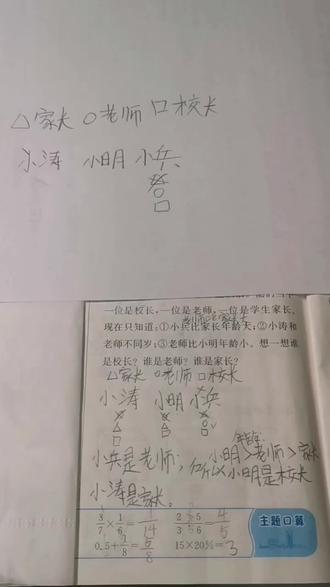 △家长 ○老师 □校长
小涛 小明 小兵
一位是校长,一位是老师,一位是学生家长。
现在只知道:①小兵比家长年龄大;②小涛和
老师不同岁;③老师比小明年龄小。想一想谁
是校长?谁是老师?谁是家长?
△家长 ○老师 □校长
小涛 小明 小兵
小兵是老师, 小明>老师>家长
所以小明是校长
小涛是家长。
3/7×1/6=1/14 2/3×5/6=4/5
0.5+1/8=5/8 15×20%=3
主题口算